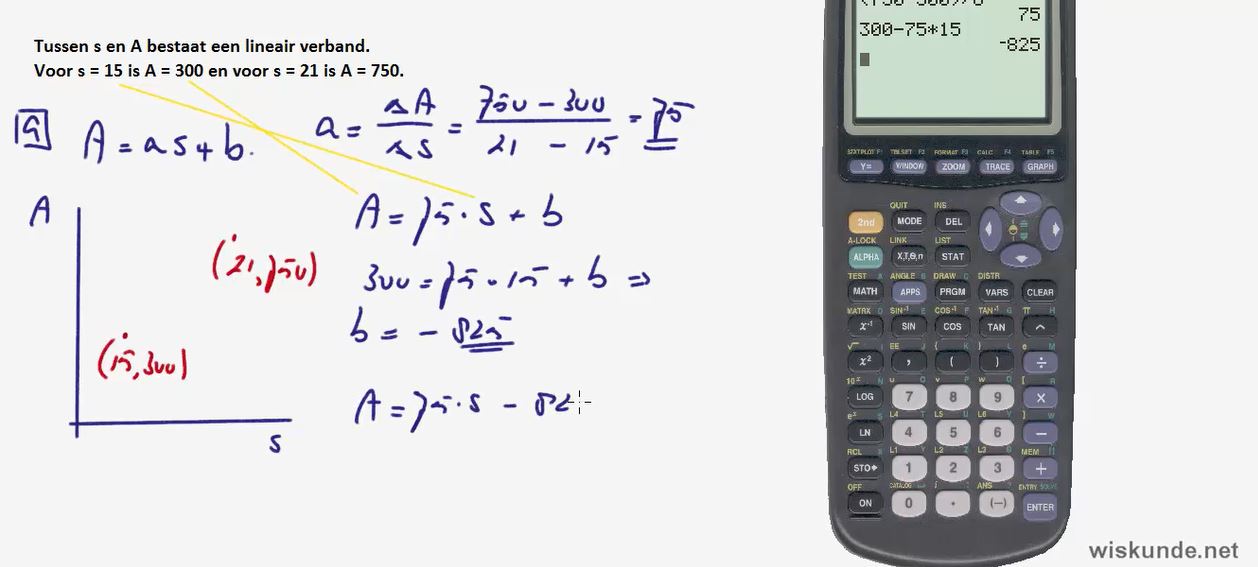 Tussen s en A bestaat een lineair verband.
Voor s = 15 is A = 300 en voor s = 21 is A = 750.
a A = as + b.
a = ΔA/Δs = (750 - 300)/(21 - 15) = 75
A = 75 · s + b
300 = 75 · 15 + b ⇒
b = - 825
A = 75 · s - 82
A
(21, 750)
(15, 300)
s
75
300-75*15
-825
STAT PLOT F1 TBLSET F2 FORMAT F3 CALC F4 TABLE F5
Y= WINDOW ZOOM TRACE GRAPH
QUIT INS
2nd MODE DEL
A-LOCK LINK LIST
ALPHA X,T,θ,n STAT
TEST A ANGLE B DRAW C DISTR
MATH APPS PRGM VARS CLEAR
MATRX D SIN⁻¹ E COS⁻¹ F TAN⁻¹ G π H
x⁻¹ SIN COS TAN ^
√ I EE J { K } L e M
x² , ( ) ÷
10ˣ N u O v P w Q [ R
LOG 7 8 9 ×
eˣ S L4 T L5 U L6 V ] W
LN 4 5 6 −
RCL X L1 Y L2 Z L3 θ MEM "
STO▸ 1 2 3 +
OFF CATALOG i ANS ? ENTRY SOLVE
ON 0 . (−) ENTER
wiskunde.net